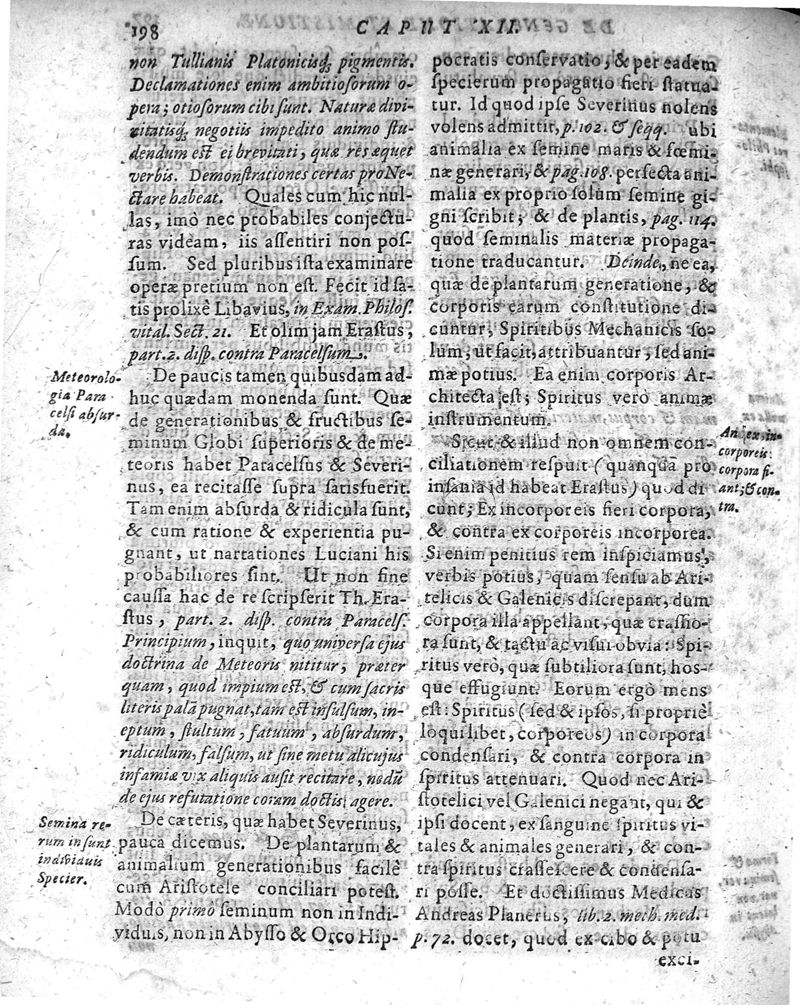 198 CAPUT XII.
non Tullianis Platonicisq; pigmentis.
Declamationes enim ambitiosorum o-
pera; otiosorum cibi sunt. Naturæ divi-
nitatisq; negotiis impedito animo stu-
dendum est ei brevitati, quæ res æquet
verbis. Demonstrationes certas pro Ne-
ctare habeat. Quales cum hîc nul-
las, imò nec probabiles conjectu-
ras videam, iis assentiri non pos-
sum. Sed pluribus ista examinare
operæ pretium non est. Fecit id sa-
tis prolixè Libavius, in Exam. Philos.
vital. Sect. 21. Et olim jam Erastus,
part. 2. disp. contra Paracelsum.
Meteorolo-
gia Para
celsi absur-
da.
De paucis tamen quibusdam ad-
huc quædam monenda sunt. Quæ
de generationibus & fructibus se-
minum Globi superioris & de me-
teoris habet Paracelsus & Severi-
nus, ea recitasse supra satisfuerit.
Tam enim absurda & ridicula sunt,
& cum ratione & experientia pu-
gnant, ut nartationes Luciani his
probabiliores sint. Ut non sine
caussa hac de re scripserit Th. Era-
stus, part. 2. disp. contra Paracels.
Principium, inquit, quo universa ejus
doctrina de Meteoris nititur, præter
quam, quod impium est, & cum sacris
literis palã pugnat, tam est insulsum, in-
eptum, stultum, fatuum, absurdum,
ridiculum, falsum, ut sine metu alicujus
infamiæ vix aliquis ausit recitare, nedũ
de ejus refutatione coram doctis agere.
Semina re-
rum insunt
individuis
Specier.
De cæteris, quæ habet Severinus,
pauca dicemus. De plantarum &
animalium generationibus facilè
cum Aristotele conciliari potest.
Modò primò seminum non in Indi-
viduis, non in Abysso & Orco Hip-
pocratis conservatio, & per eadem
specierum propagatio fieri statua-
tur. Id quod ipse Severinus nolens
volens admittit, p. 102. & seqq. ubi
animalia ex semine maris & fœmi-
næ generari, & pag. 108. perfecta ani-
malia ex proprio solùm semine gi-
gni scribit; & de plantis, pag. 114.
quod seminalis materiæ propaga-
tione traducantur. Deinde, ne ea,
quæ de plantarum generatione, &
corporis earum constitutione di-
cuntur, Spiritibus Mechanicis so-
lum, ut facit, attribuantur, sed ani-
mæ potius. Ea enim corporis Ar-
chitecta est; Spiritus verò animæ
instrumentum.
Sicut & illud non omnem con-
ciliationem respuit (quanquã pro
insania id habeat Erastus) quod di
cunt; Ex incorporeis fieri corpora,
& contra ex corporeis incorporea.
An ex in-
corporeis
corpora fi-
ant; & con-
tra.
Si enim penitius rem inspiciamus,
verbis potius, quam sensu ab Ari-
telicis & Galenicis discrepant, dum
corpora illa appellant, quæ crassio-
ra sunt, & tactu ac visui obvia: Spi-
ritus verò, quæ subtiliora sunt, hos-
que effugiunt. Eorum ergò mens
est: Spiritus (sed & ipsos, si propriè
loqui libet, corporeos) in corpora
condensari, & contra corpora in
spiritus attenuari. Quod nec Ari-
stotelici vel Galenici negant, qui &
ipsi docent, ex sanguine spiritus vi-
tales & animales generari, & con-
tra spiritus crassescere & condensa-
ri posse. Et doctissimus Medicus
Andreas Planerus, lib. 2. meth. med.
p. 72. docet, quod ex cibo & potu
exci-